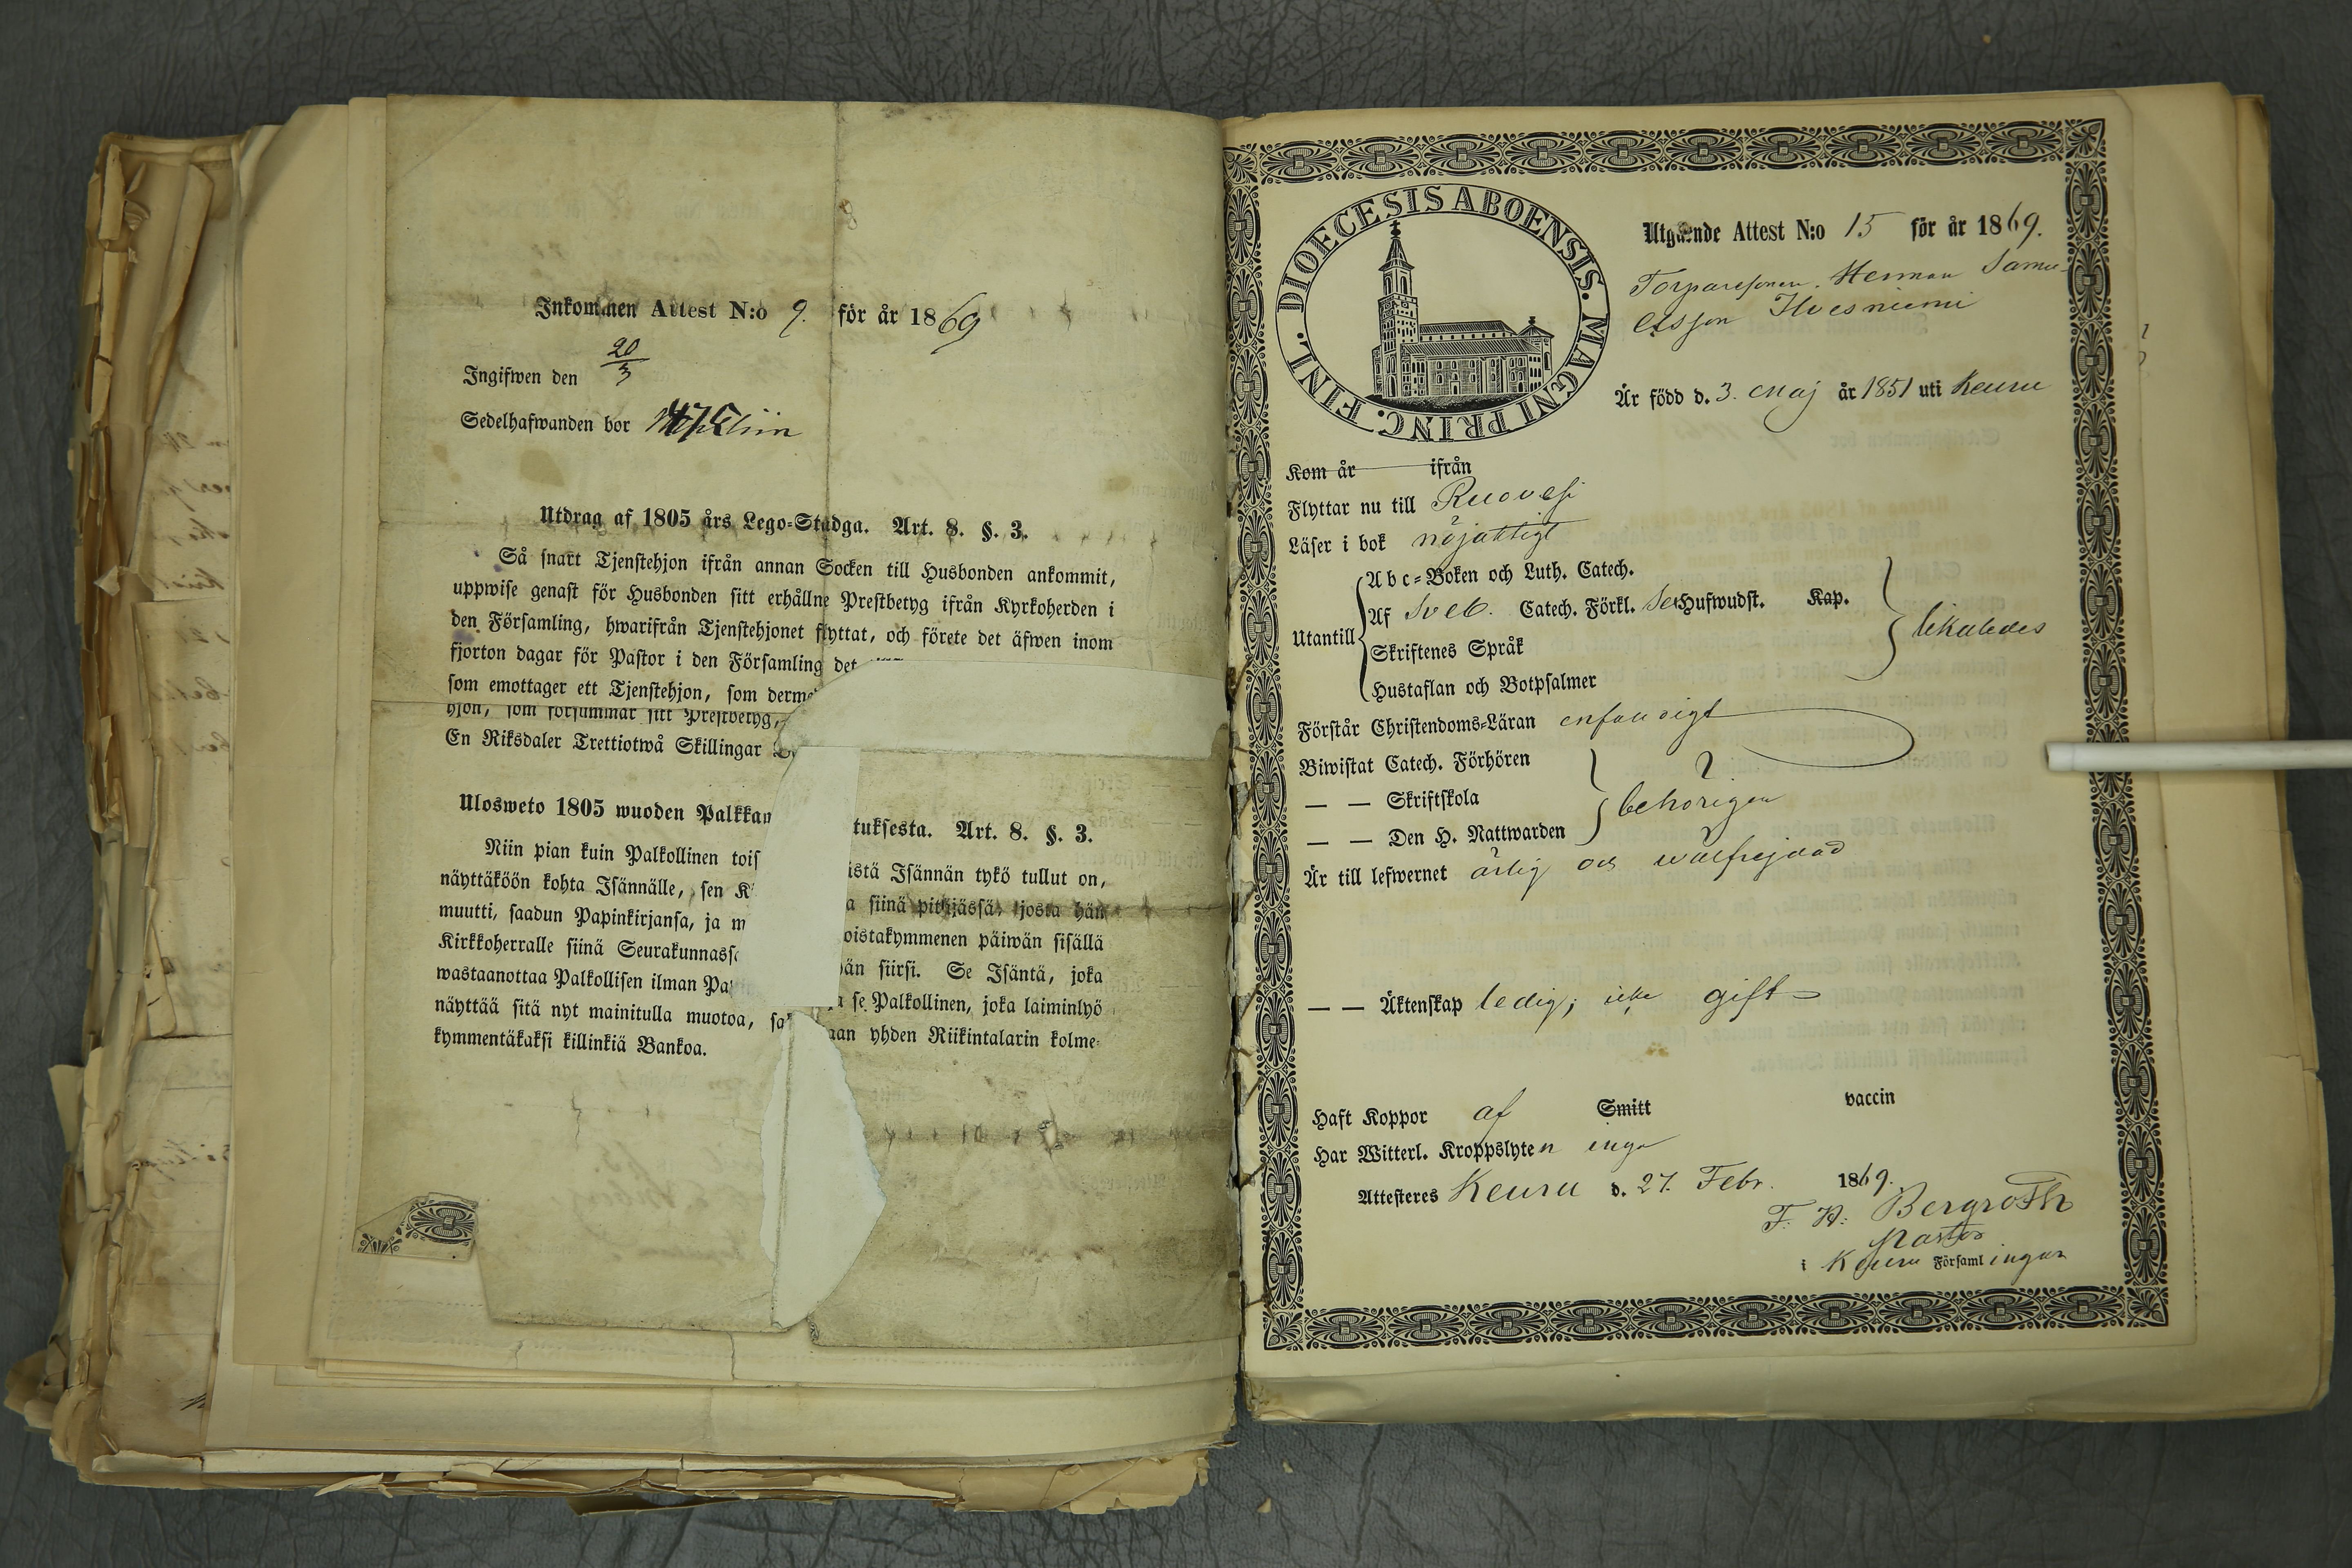 Inkommen Attest N:o 9. för år 1869
Ingifwen den 20/3
Sedelhafwanden bor
Utdrag af 1805 års Lego-Stadga. Art. 8. §. 3.
Så snart Tjenstehjon ifrån annan Socken till Husbonden ankommit,
uppwise genast för Husbonden sitt erhållne Prestbetyg ifrån Kyrkoherden i
den Församling, hwarifrån Tjenstehjonet flyttat, och förete det äfwen inom
fjorton dagar för Pastor i den Församling det
som emottager ett Tjenstehjon, som
hjon, som försummar sitt Prestbetyg,
En Riksdaler Trettiotwå Skillingar
Ulosweto 1805 wuoden Palkkan tuksesta. Art. 8. §. 3.
Niin pian kuin Palkollinen tois istä Isännän tykö tullut on,
näyttäköön kohta Isännälle, sen K a siinä pitäjässä, josta hän
muutti, saadun Papinkirjansa, ja m oistakymmenen päiwän sisällä
Kirkkoherralle siinä Seurakunnass än siirsi. Se Isäntä, joka
wastaanottaa Palkollisen ilman Pa a se Palkollinen, joka laiminlyö
näyttää sitä nyt mainitulla muotoa, sak aan yhden Riikintalarin kolme-
kymmentäkaksi killinkiä Bankoa.
DIOECESIS ABOENSIS. MAGNI PRINC. FINL.
Utgående Attest N:o 15 för år 1869.
Torparesonen. Herman Samu-
elsson Ilvesniemi
Är född d. 3. Maj år 1851 uti Keuru
Kom år ifrån
Flyttar nu till Ruovesi
Läser i bok nöjaktigt
Utantill
Abc-Boken och Luth. Catech.
Af Sveb. Catech. Förkl. Hufwudst. Kap.
Skriftenes Språk
Hustaflan och Botpsalmer
likaledes
Förstår Christendoms-Läran enfaldigt
Biwistat Catech. Förhören
— — Skriftskola
— — Den H. Nattwarden
behörigen
Är till lefwernet ärlig och wälfrejdad
— — Äktenskap ledig; icke gift
Haft Koppor af Smitt vaccin
Har Witterl. Kroppslyten inga
Attesteres Keuru d. 27. Febr. 1869.
F. H. Bergroth
Pastor
i Keuru Församlingar